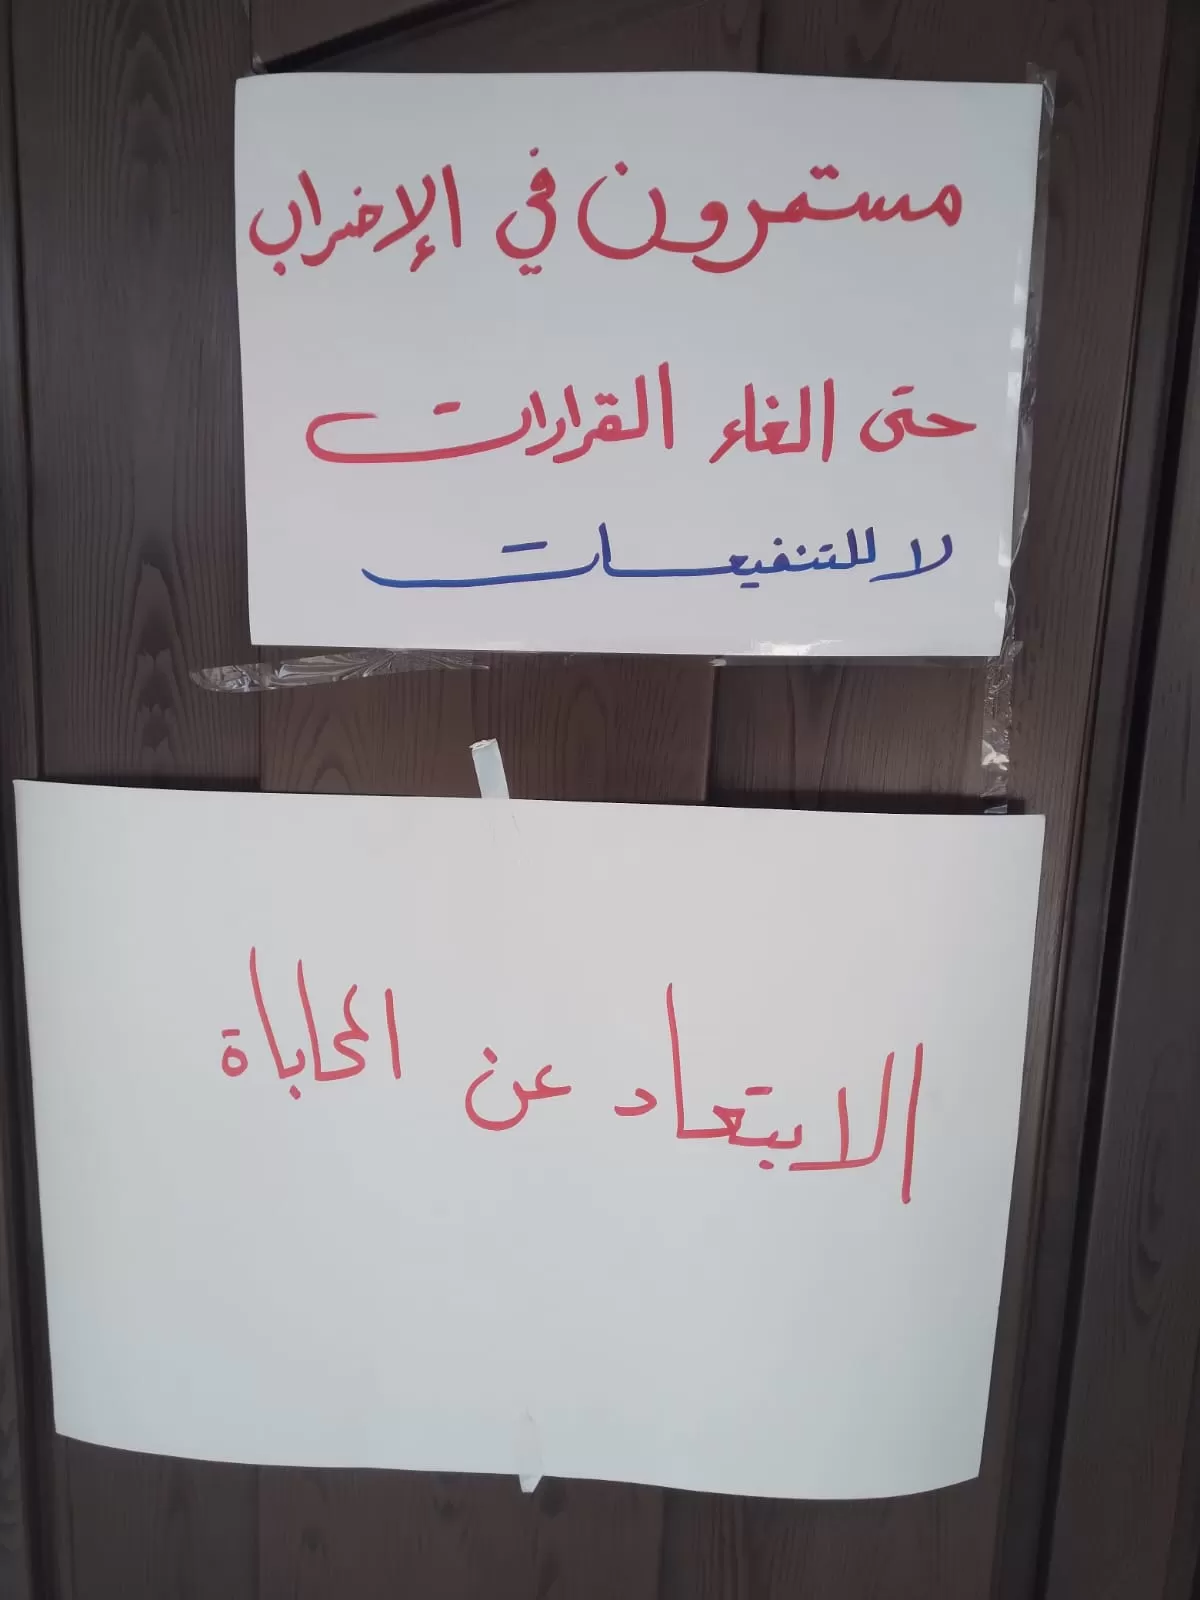 مستمرون في الإضراب
حتى الغاء القرارات
لا للتنفيعات
الابتعاد عن المحاباة